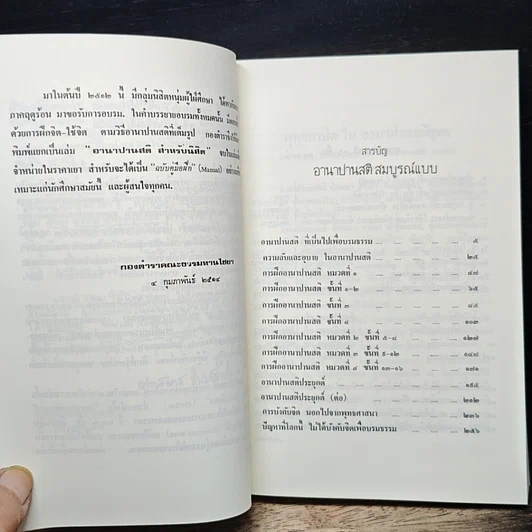 มาในต้นปี ๒๕๑๒ นี้ มีกลุ่มนิสิตหนุ่มผู้ใฝ่ศึกษา
ภาคฤดูร้อน มาขอรับการอบรม, ในคำบรรยายอบรมทั้งหมดนั้น
ด้วยการฝึกจิต-ใช้จิต ตามวิธีอานาปานสติที่เต็มรูป กองตำรา
พิมพ์แยกเป็นเล่ม "อานาปานสติ สำหรับนิสิต"
จำหน่ายในราคาเยา สำหรับจะได้เป็น "ฉบับคู่มือฝึก" (Manual)
เหมาะแก่นักศึกษาสมัยนี้ และผู้สนใจทุกคน.
กองตำราคณะธรรมทานไชยา
๔ กุมภาพันธ์ ๒๕๑๔
สารบัญ
อานาปานสติ สมบูรณ์แบบ
อานาปานสติ ที่เป็นไปเพื่อบรมธรรม ... ๕
ความลับและอุบาย ในอานาปานสติ ... ๒๕
การฝึกอานาปานสติ หมวดที่ ๑ ... ๔๗
การฝึกอานาปานสติ ขั้นที่ ๑-๒ ... ๖๕
การฝึกอานาปานสติ ขั้นที่ ๓ ... ๘๕
การฝึกอานาปานสติ ขั้นที่ ๔ ... ๑๐๓
การฝึกอานาปานสติ หมวดที่ ๒ ขั้นที่ ๕-๘ ... ๑๒๗
การฝึกอานาปานสติ หมวดที่ ๓ ขั้นที่ ๙-๑๒ ... ๑๔๗
การฝึกอานาปานสติ หมวดที่ ๔ ขั้นที่ ๑๓-๑๖ ... ๑๗๑
อานาปานสติประยุกต์ ... ๑๙๕
อานาปานสติประยุกต์ (ต่อ) ... ๒๑๒
การบังคับจิต นอกไปจากพุทธศาสนา ... ๒๓๖
ปัญหาที่โลกนี้ ไม่ได้บังคับจิตเพื่อบรมธรรม ... ๒๕๖